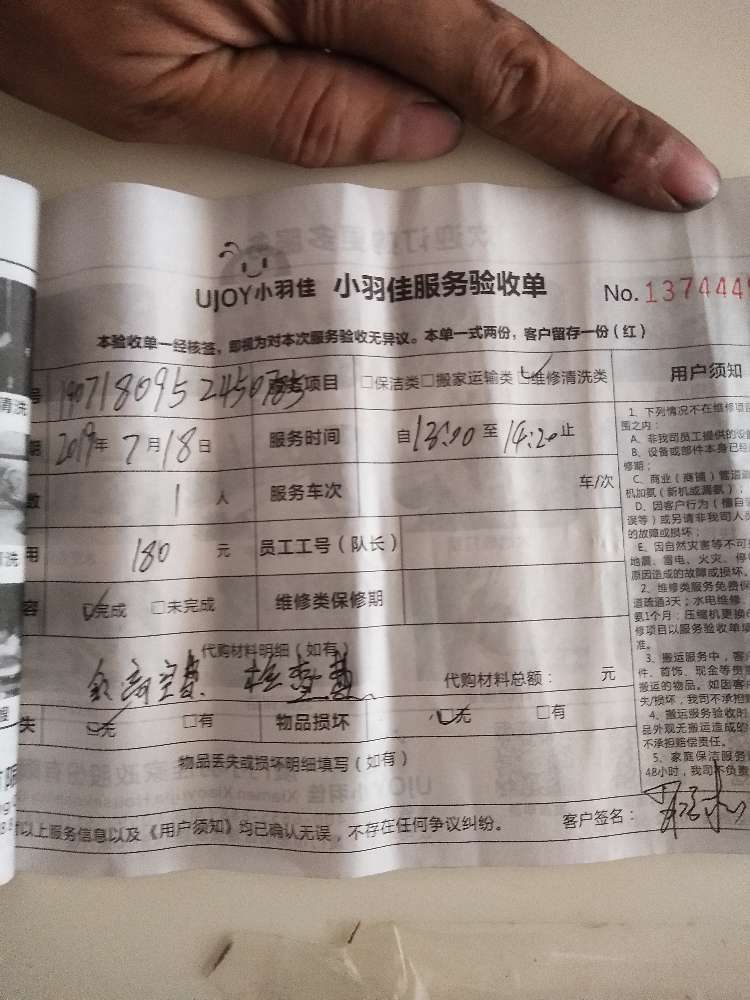 UJOY小羽佳 小羽佳服务验收单 No.137444
本验收单一经核签,即视为对本次服务验收无异议。本单一式两份,客户留存一份(红)
号 190718095 2450785 服务项目 □保洁类□搬家运输类☑维修清洗类 用户须知
期 2019年7月18日 服务时间 自13:00至14:20止
数 1人 服务车次 车/次
用 180元 员工工号(队长)
容 ☑完成 □未完成 维修类保修期
代购材料明细(如有)
检查费 代购材料总额: 元
失 ☑无 □有 物品损坏 ☑无 □有
物品丢失或损坏明细填写(如有)
以上服务信息以及《用户须知》均已确认无误,不存在任何争议纠纷。 客户签名:
1、下列情况不在维修项目
围之内:
A、非我司员工提供的设
B、设备或部件本身已经
修期;
C、商业(商铺)管道
机加氨(新机或漏氨);
D、因客户行为(擅自
误等)或另请非我司人员
的故障或损坏;
E、因自然灾害等不可
地震、雷电、火灾、停
原因造成的故障或损坏。
2、维修类服务免费保
道疏通3天;水电维修、
氨1个月;压缩机更换
修项目以服务验收单
准。
3、搬运服务中,客户
件、首饰、现金等贵
搬运的物品。如因客户
失/损坏,我司不承担
4、搬运服务验收时
品外观无搬运造成的
不承担赔偿责任。
5、家庭保洁服务
48小时,我司不负责